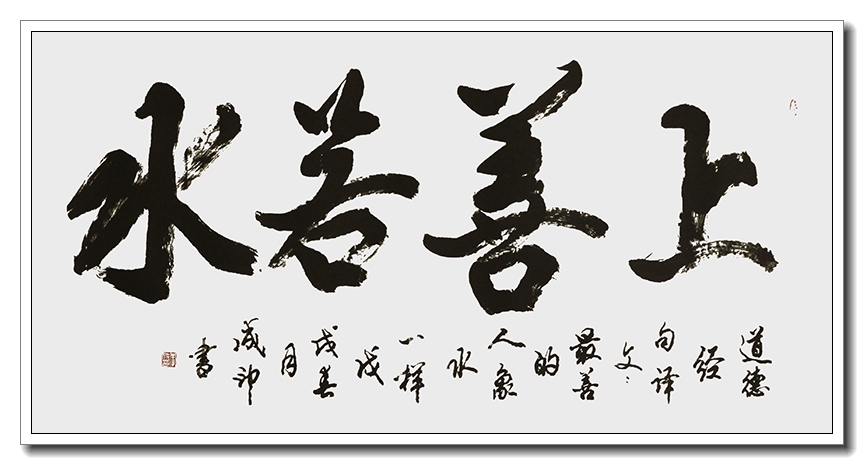 上善若水
道德
经
句译
文:
最善
的
人象
水
一样
戊
戌春
月
書